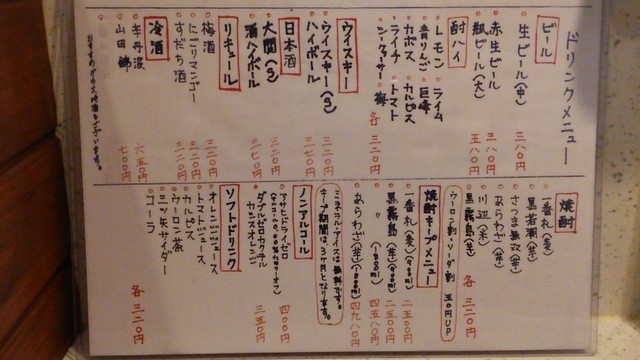 ドリンクメニュー
ビール
生ビール(中) 三八〇円
赤生ビール 三八〇円
瓶ビール(大) 五八〇円
酎ハイ
レモン ライム
青りんご 巨峰
カボス カルピス
ライチ トマト
シークァーサー 梅
各 三二〇円
ウイスキー
ウイスキー(S) 三二〇円
ハイボール 三七〇円
日本酒
大関(S) 三二〇円
酒ハイボール 三七〇円
リキュール
梅酒 三二〇円
にごりマンゴー 三二〇円
すだち酒 三二〇円
冷酒
辛丹波 六五〇円
山田錦 七〇〇円
焼酎
一番札(麦)
黒若潮(芋)
さつま黒双(芋)
あらわざ(芋)
川辺(米)
黒霧島(芋)
各 三二〇円
ウーロン割・ソーダ割 五〇円UP
焼酎キープメニュー
一番札(麦)(900ml) 二五〇〇円
黒霧島(芋)(900ml) 二五〇〇円
〃 (1800ml) 四五八〇円
あらわざ(芋)(1800ml) 四九八〇円
ミネラル・アイスは無料です。
キープ期間は3ヶ月となります。
ノンアルコール
アサヒドライゼロ 四〇〇円
ダブルゼロカクテル
カシスオレンジ 三五〇円
ソフトドリンク
オレンジジュース
トマトジュース
カルピス
ウーロン茶
三ツ矢サイダー
コーラ
各 三二〇円